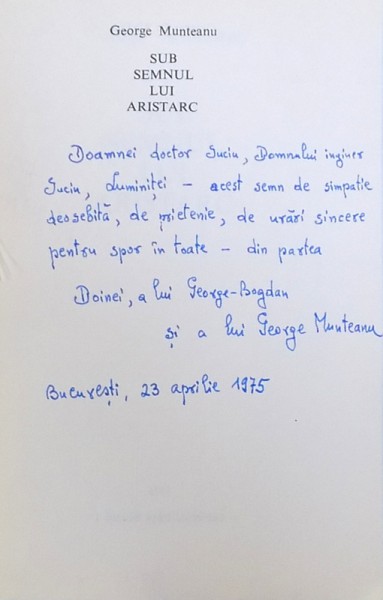 George Munteanu
SUB
SEMNUL
LUI
ARISTARC
Doamnei doctor Suciu, Domnului inginer
Suciu, Luminiței – acest semn de simpatie
deosebită, de prietenie, de urări sincere
pentru spor în toate – din partea
Doinei, a lui George-Bogdan
și a lui George Munteanu
București, 23 aprilie 1975